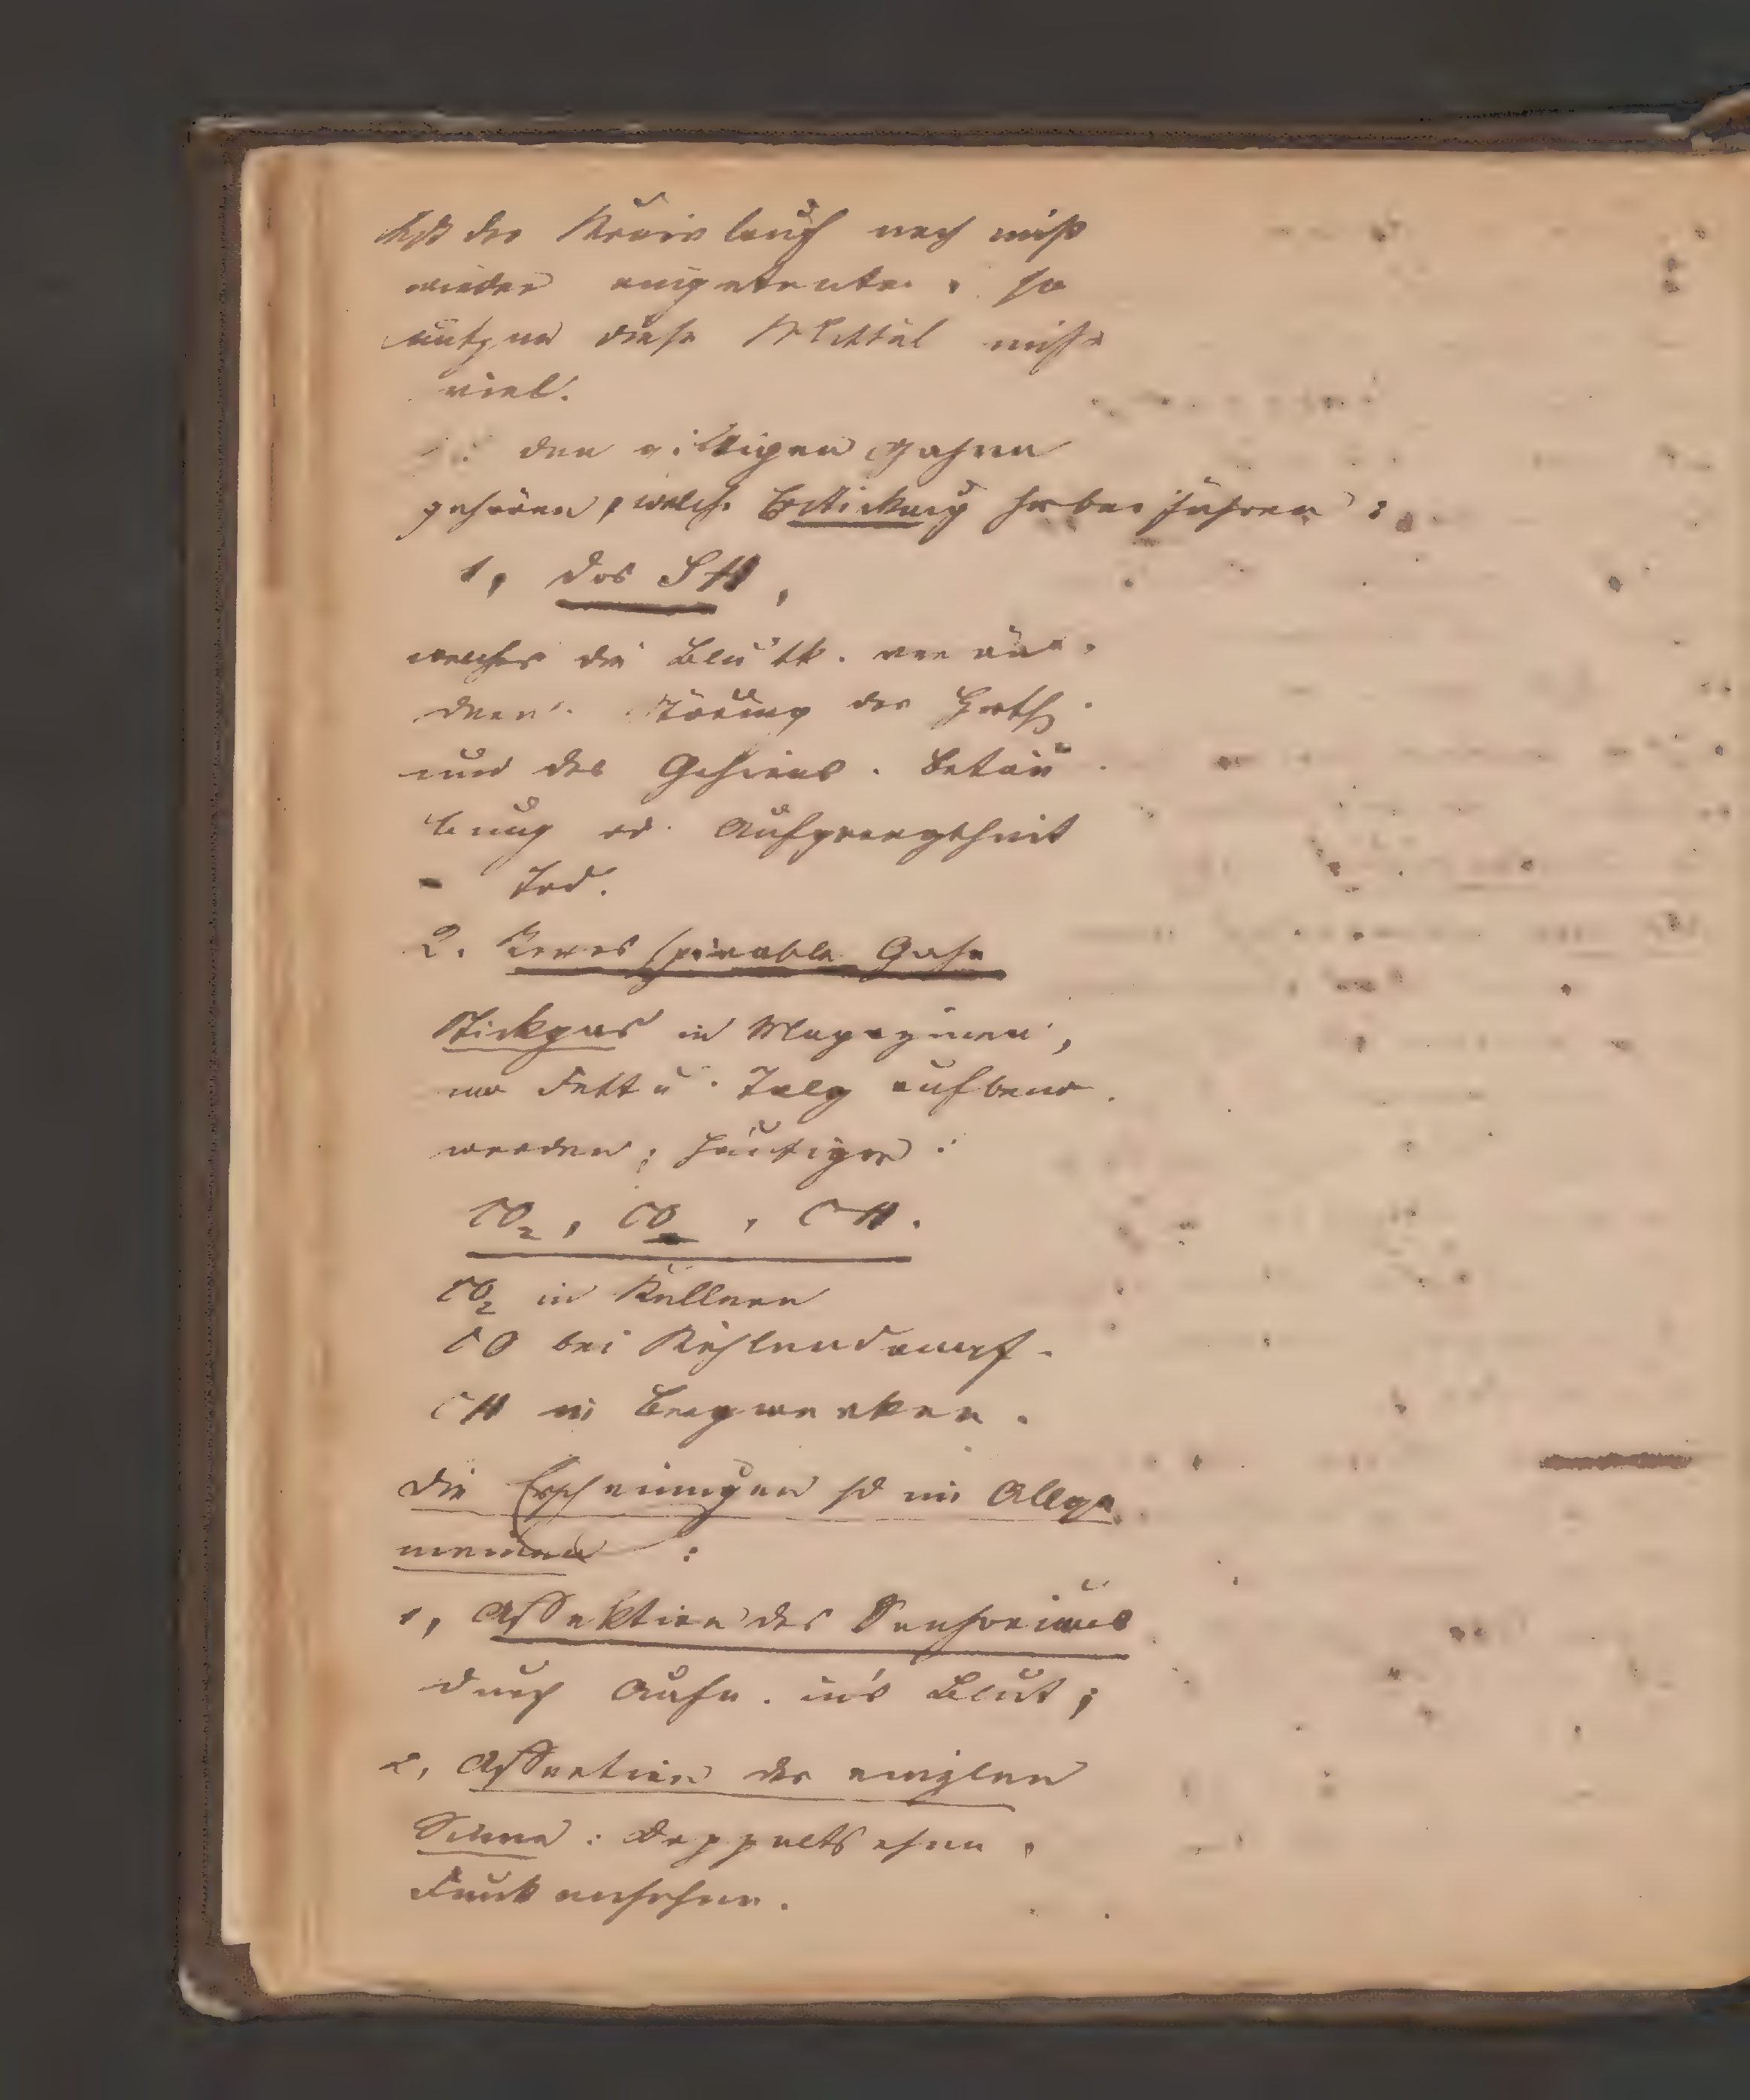 Ist der Kreislauf noch nicht
wieder eingetreten, so
nützen diese Mittel nicht
viel.
den giftigen Gasen
gehören, welche Erstickung herbeiführen:
1, das SH,
welches die Blutk. verän-
dern. Störung des Herz.
und des Gehirns. Betäu-
bung od. Aufgeregtheit
- Tod.
2. Irrespirable Gase
Stickgas in Magazinen,
wo Fett u. Talg aufbew.
werden; häufiger:
CO2, CO, CH.
CO2 in Kellern
CO bei Kohlendampf.
CH in Bergwerken.
Die Erscheinungen sd im Allge
meinen:
1, Affektion des Sensoriums
durch Aufn. in's Blut;
2, Affection der einzlnen
Sinne: Doppeltsehen,
Funkensehen.